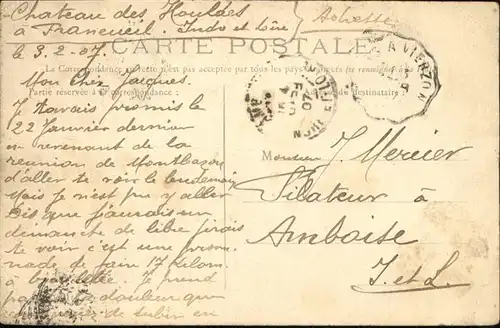 Chateau des Houldes
à Francueil. Indre et Loire
le 3.2.07.
CARTE POSTALE
La Correspondance au recto n'est pas acceptée par tous les pays étrangers (se renseigner à la
Partie réservée à la correspondance
du destinataire
A VIERZON
Mon cher Jacques.
Je t'avais promis le
22 Janvier dernier
en revenant de la
reunion de Montbazon
d'aller te voir le lendemain
Mais je n'est pu y aller
Dis que j'aurais un
dimanche de libre j'irais
te voir c'est une prome
nade de faire 17 kilom.
à bicyclette Je prend
la douleur que
de subir en
Monsieur J. Mercier
Filateur à
Amboise
I. et L.